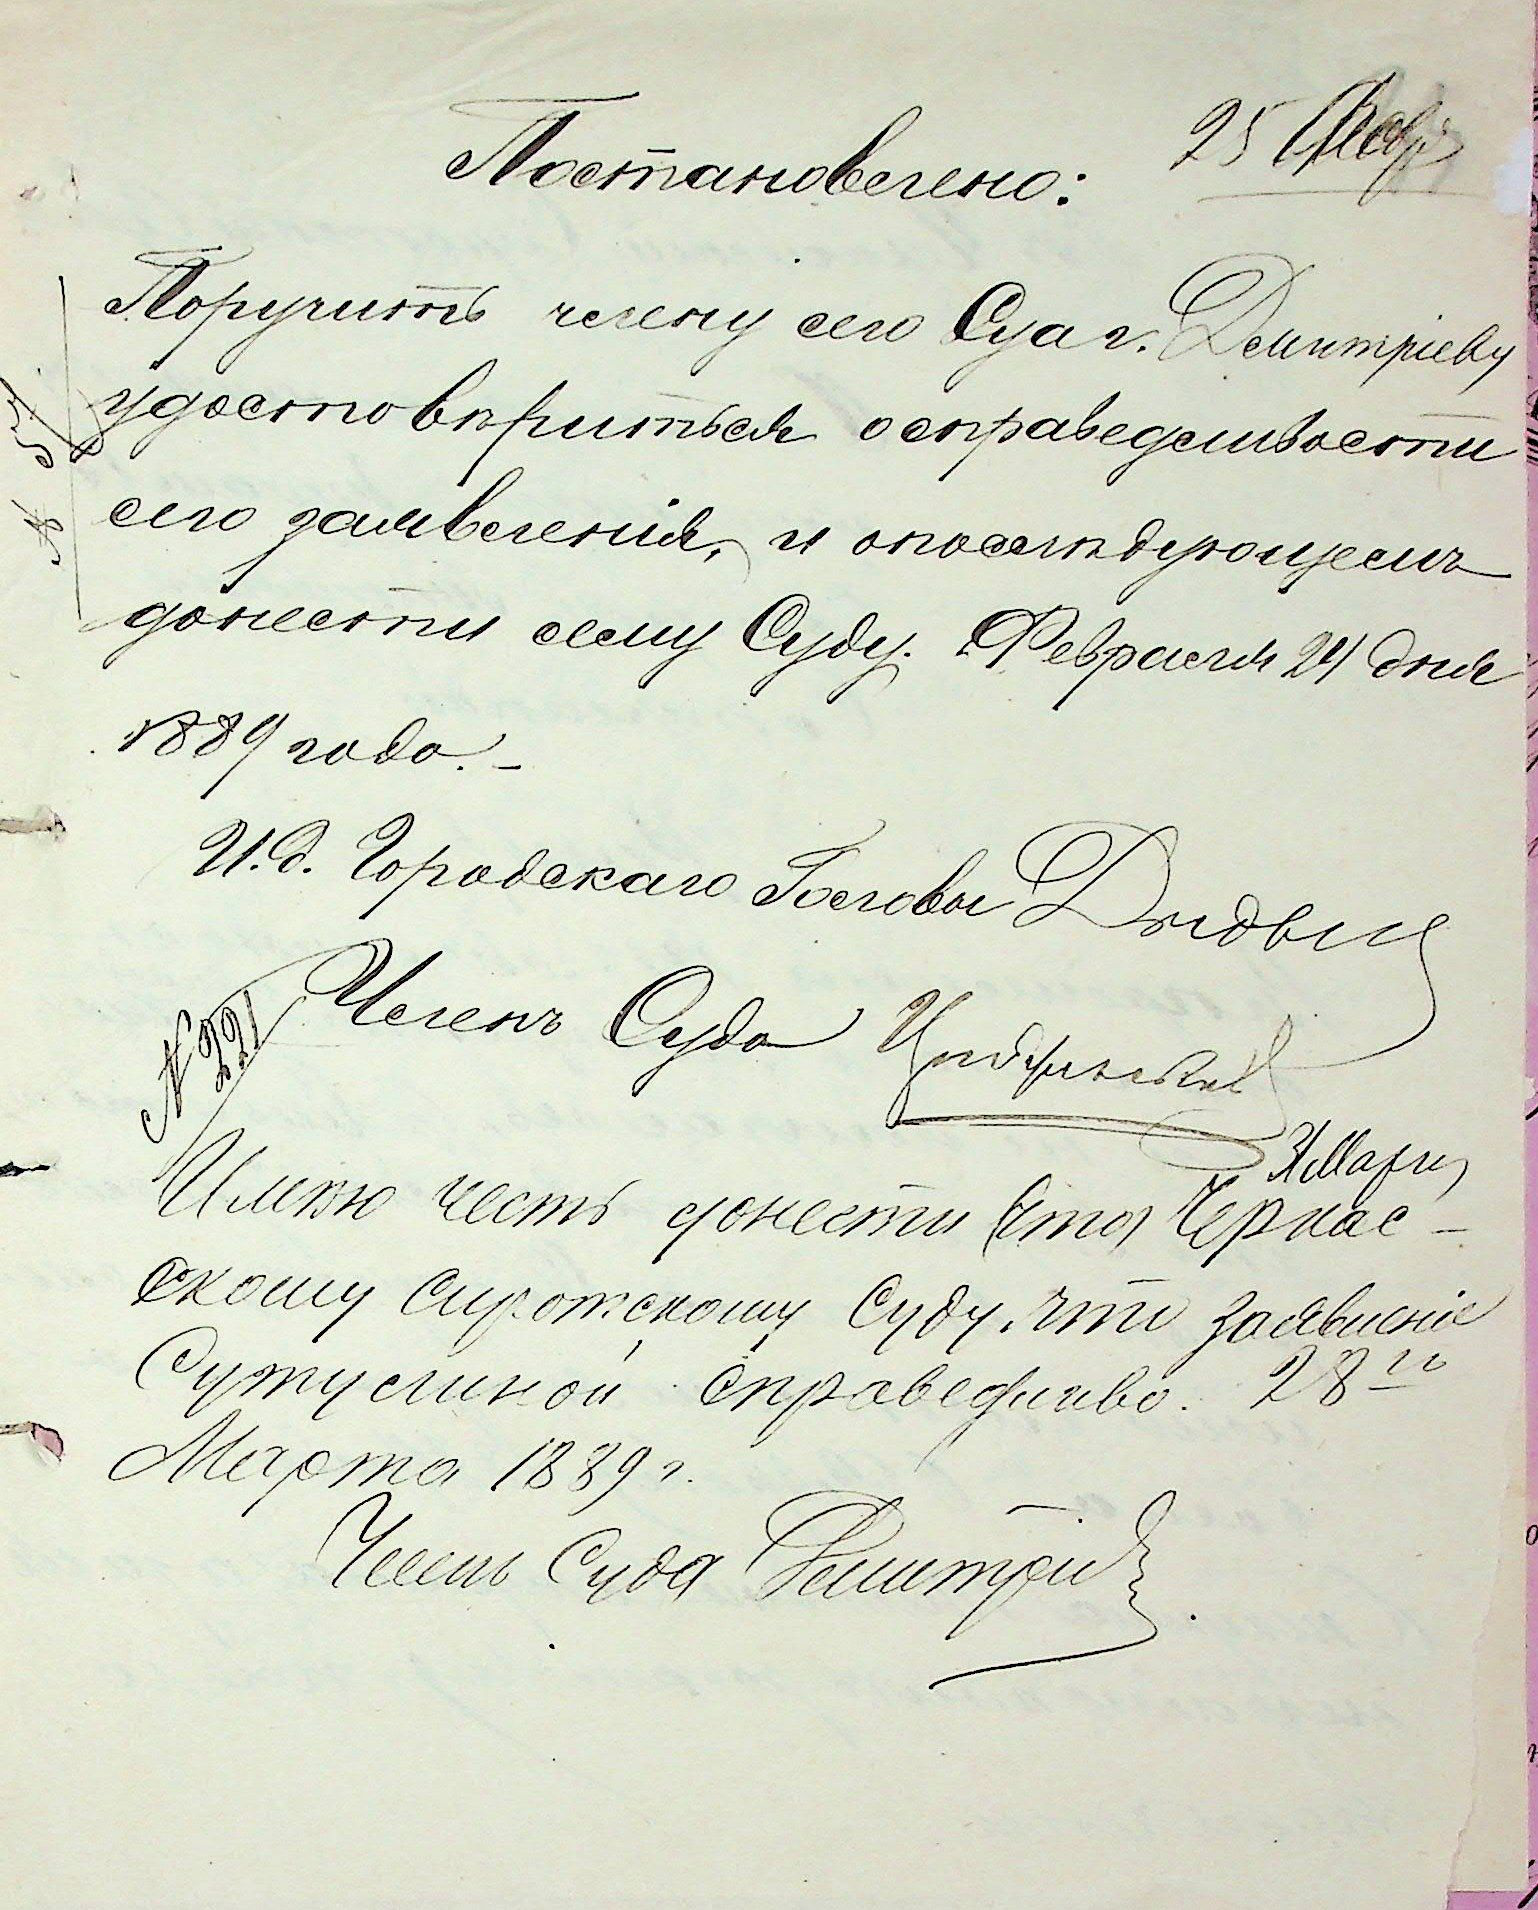 25 Февр
Постановлено:
Поручить члену сего Суа г. Дмитріеву
удостовѣриться о справедливости
сего заявленія, и о послѣдующемъ
донести сему Суду. Февраля 24 дня
1889 года. –
№ 57
И. д. Городскаго Головы
Членъ Суда
№ 221
31 Марта
Имѣю честь донести (что) Черкас-
скому Сиротскому Суду, что заявленіе
Сутулиной справедливо. 28го
Марта 1889 г.
Членъ Суда Дмитріев